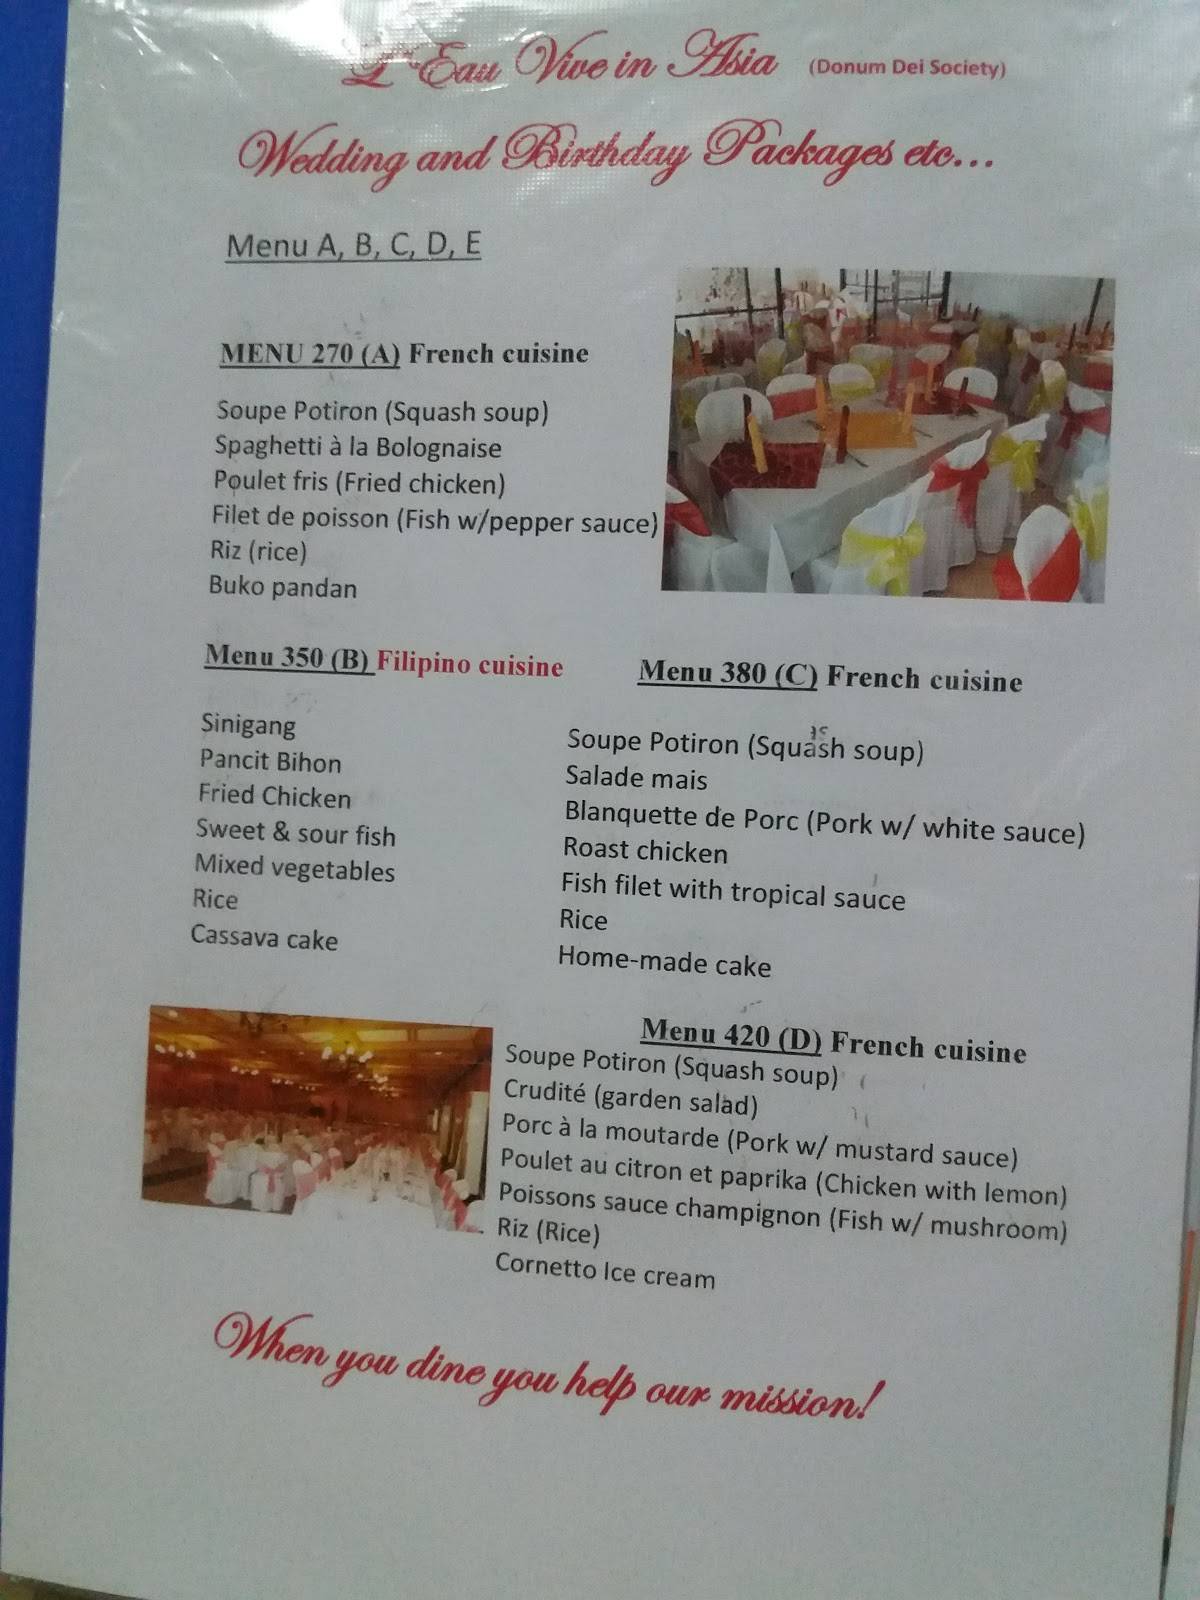 L'Eau Vive in Asia (Donum Dei Society)
Wedding and Birthday Packages etc...
Menu A, B, C, D, E
MENU 270 (A) French cuisine
Soupe Potiron (Squash soup)
Spaghetti à la Bolognaise
Poulet fris (Fried chicken)
Filet de poisson (Fish w/pepper sauce)
Riz (rice)
Buko pandan
Menu 350 (B) Filipino cuisine
Sinigang
Pancit Bihon
Fried Chicken
Sweet & sour fish
Mixed vegetables
Rice
Cassava cake
Menu 380 (C) French cuisine
Soupe Potiron (Squash soup)
Salade mais
Blanquette de Porc (Pork w/ white sauce)
Roast chicken
Fish filet with tropical sauce
Rice
Home-made cake
Menu 420 (D) French cuisine
Soupe Potiron (Squash soup)
Crudité (garden salad)
Porc à la moutarde (Pork w/ mustard sauce)
Poulet au citron et paprika (Chicken with lemon)
Poissons sauce champignon (Fish w/ mushroom)
Riz (Rice)
Cornetto Ice cream
When you dine you help our mission!